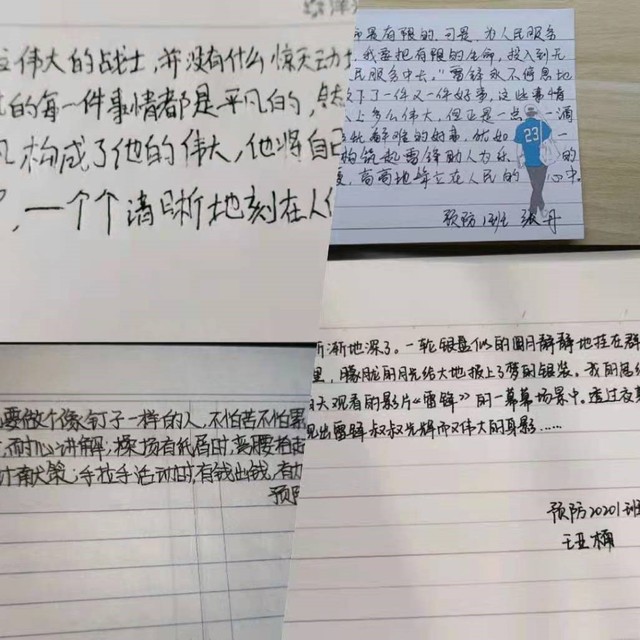 立伟大的战士,并没有什么惊天动
的每一件事情都是平凡的,
凡构成了他的伟大,他将自己
,一个个清晰地刻在人
是有限的,可是,为人民服务
我要把有限的生命,投入到无
民服务中去。"雷锋永不停息地
下了一件又一件好事,这些事情
上多么伟大,但正是一点一滴
的好事,犹如 一
构筑起雷锋助人为乐 的
,高高地耸立在人民的 心中。
23
预防 班 张丹
要做个像钉子一样的人,不怕苦不怕累
,耐心讲解;操场有纸屑时,弯腰拾起
计献策;手拉手活动时,有钱出钱,有力
预防
渐渐地深了。一轮银盘似的圆月静静地挂在群
里,朦胧的月光给大地披上了梦的银装。我的思绪
天观看的影片《雷锋》的一幕幕场景中。透过夜
见出雷锋叔叔光辉而又伟大的身影……
预防2020 班
王亚楠